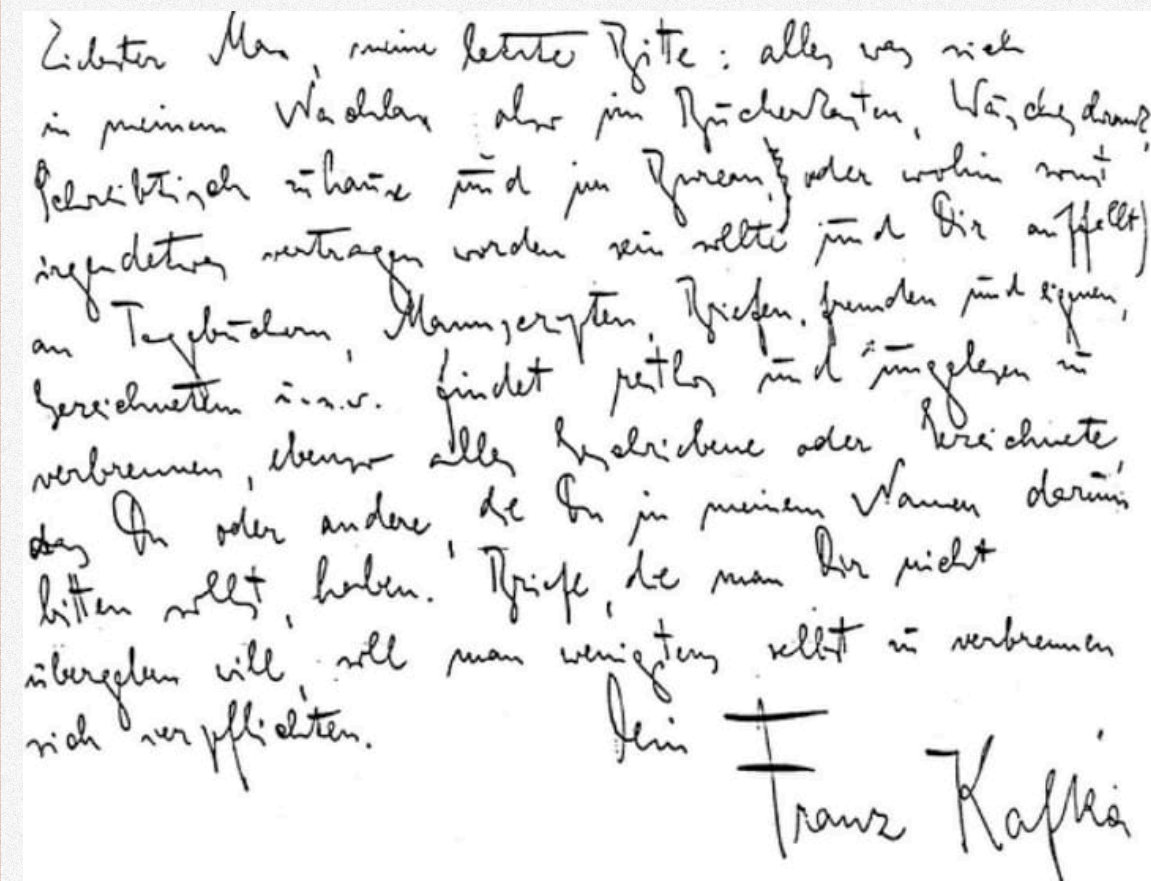 Liebster Max, meine letzte Bitte: alles was sich
in meinem Nachlass also im Bücherkasten, Wäscheschrank,
Schreibtisch zuhause und im Bureau, oder wohin sonst
irgendetwas vertragen worden sein sollte und Dir auffällt)
an Tagebüchern, Manuscripten, Briefen, fremden und eigenen,
Gezeichnetem u.s.w. findet restlos und ungelesen zu
verbrennen, ebenso alles Geschriebene oder Gezeichnete,
das Du oder andere, die Du in meinem Namen darum
bitten sollst, haben. Briefe, die man Dir nicht
übergeben will, soll man wenigstens selbst zu verbrennen
sich verpflichten. Dein
Franz Kafka